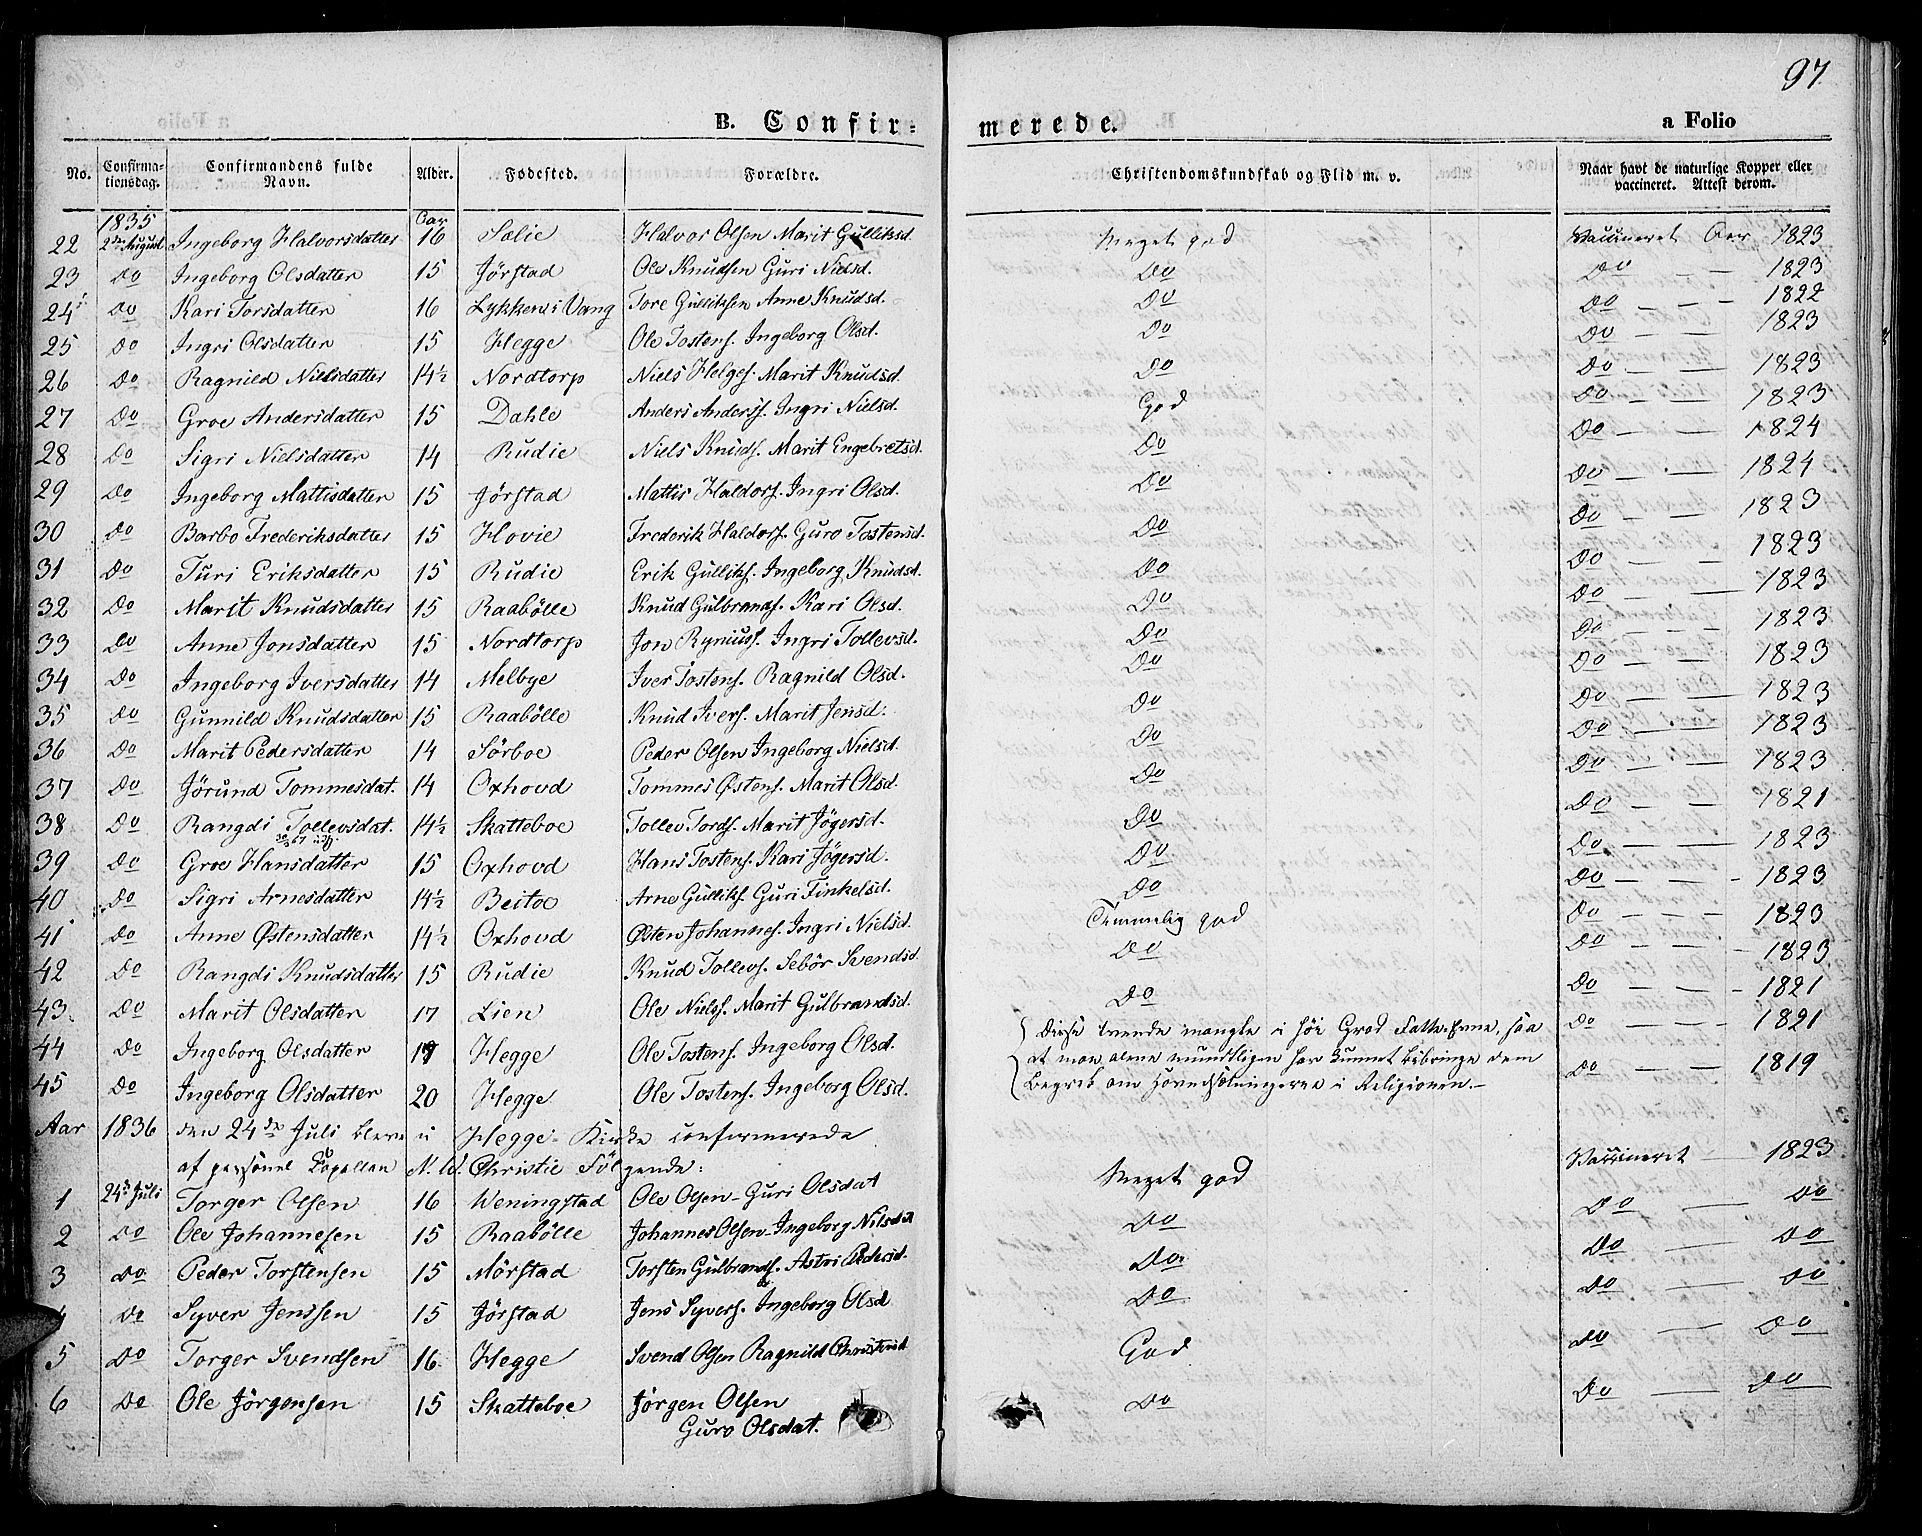 97
B. Confir= merede. a Folio
No. Confirma-tionsdag. Confirmandens fulde Navn. Alder. Fødested. Forældre. Christendomskundskab og Flid m. v. Naar havt de naturlige Kopper eller vaccineret. Attest derom.
1835 Aar
22 2den August Ingeborg Halvorsdatter 16 Sælie Halvor Olsen Marit Gulliksd. Meget god Vaccineret Aar 1823
23 Do Ingeborg Olsdatter 15 Jørstad Ole Knudsen Guri Nielsd. Do Do — — 1823
24 Do Kari Torsdatter 16 Lykken i Vang Tore Gulliksen Anne Knudsd. Do Do — — 1822
25 Do Ingri Olsdatter 15 Hegge Ole Tostens. Ingeborg Olsd. Do Do — — 1823
26 Do Ragnild Nielsdatter 14½ Nordtorp Niels Helges. Marit Knudsd. Do Do — — 1823
27 Do Groe Andersdatter 15 Dahle Anders Anderss. Ingri Nielsd. God Do — — 1823
28 Do Sigri Nielsdatter 14 Rudie Niels Knuds. Marit Engebretsd. Do Do — — 1824
29 Do Ingeborg Mattisdatter 15 Jørstad Mattis Haldors. Ingri Olsd. Do Do — — 1824
30 Do Barbo Frederiksdatter 15 Hovie Frederik Haldors. Guro Tostensd. Do Do — — 1823
31 Do Turi Eriksdatter 15 Rudie Erik Gulliks. Ingeborg Knudsd. Do Do — — 1823
32 Do Marit Knudsdatter 15 Raabølle Knud Gulbrands. Kari Olsd. Do Do — — 1823
33 Do Anne Jonsdatter 15 Nordtorp Jon Ryniuss. Ingri Tollevsd. Do Do — — 1823
34 Do Ingeborg Iversdatter 14 Melbye Iver Tostens. Ragnild Olsd. Do Do — — 1823
35 Do Gunnild Knudsdatter 15 Raabølle Knud Ivers. Marit Jensd. Do Do — — 1823
36 Do Marit Pedersdatter 14 Sørboe Peder Olsen Ingeborg Nielsd. Do Do — — 1823
37 Do Jørund Tommesdat. 14 Oxhovd Tommes Østens. Marit Olsd. Do Do — — 1823
38 Do Rangdi Tollevsdat. 14½ Skatteboe Tollev Tords. Marit Jøgersd. Do Do — — 1821
39 Do Groe Hansdatter 15 Oxhovd Hans Tostens. Kari Jøgersd. Do Do — — 1823
40 Do Sigri Arnesdatter 14½ Beitoe Arne Gulliks. Guri Finkelsd. Do Do — — 1823
41 Do Anne Østensdatter 14½ Oxhovd Østen Johannes. Ingri Nielsd. Temmelig god Do — — 1823
42 Do Rangdi Knudsdatter 15 Rudie Knud Tollevs. Sebör Svendsd. Do Do — — 1823
43 Do Marit Olsdatter 17 Lien Ole Niels. Marit Gulbrandsd. Do Do — — 1821
44 Do Ingeborg Olsdatter 17 Hegge Ole Tostens. Ingeborg Olsd. Do — — 1821
45 Do Ingeborg Olsdatter 20 Hegge Ole Tostens. Ingeborg Olsd. Do — — 1819
Disse trende mangle i høi Grad Fatte-Evne, saa
at man alene mundtligen har kunnet bibringe dem
Begreb om Hovedsætningerne i Religionen.
Aar 1836 den 24de Juli bleve i Hegge Kirke confirmerede
af personel Kapellan N. W. Christie Følgende:
1 24de Juli Torger Olsen 16 Weningstad Ole Olsen - Guri Olsdat Meget god Vaccineret — 1823
2 Do Ole Johannesen 15 Raabølle Johannes Olsen - Ingeborg Nilsdat Do Do — Do
3 Do Peder Torstensen 15 Mørstad Torsten Gulbrands. Astri Pedersd. Do Do — Do
4 Do Syver Jenssen 15 Jørstad Jens Syvers. Ingeborg Olsd Do Do — Do
5 Do Torger Svendsen 16 Hegge Svend Olsen Ragnild Christensd God Do — Do
6 Do Ole Jörgensen 15 Skatteboe Jörgen Olsen Do Do — Do
Guro Olsdat.